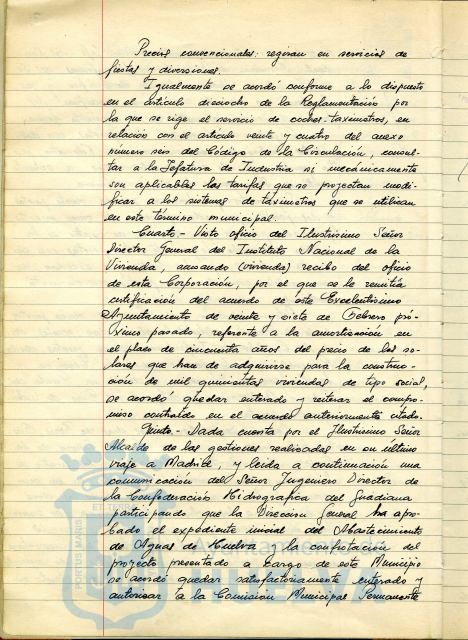 Precios convencionales: regiran en servicios de
fiestas y diversiones.
Igualmente se acordó conforme a lo dispuesto
en el artículo dieciocho de la Reglamentación por
la que se rige el servicio de coches-taximetros, en
relación con el artículo veinte y cuatro del anexo
número seis del Código de la Circulación, consul-
tar a la Jefatura de Industria si mecánicamente
son aplicables las tarifas que se proyectan modi-
ficar a los sistemas de taximetros que se utilizan
en este término municipal.
Cuarto.- Visto oficio del Ilustrisimo Señor
Director General del Instituto Nacional de la
Vivienda, acusando (vivienda) recibo del oficio
de esta Corporación, por el que se le remitia
certificación del acuerdo de este Excelentisimo
Ayuntamiento de veinte y siete de Febrero pró-
ximo pasado, referente a la amortización en
el plazo de cincuenta años del precio de los so-
lares que han de adquirirse para la construc-
ción de mil quinientas viviendas de tipo social,
se acordó quedar enterado y reiterar el compro-
miso contraido en el acuerdo anteriormente citado.
Quinto.- Dada cuenta por el Ilustrisimo Señor
Alcalde de las gestiones realizadas en su ultimo
viaje a Madrid, y leida a continuación una
comunicación del Señor Ingeniero Director de
la Confederación Hidrografica del Guadiana
participando que la Direccion General ha apro-
bado el expediente inicial del Abastecimiento
de Aguas de Huelva y la confrotacion del
proyecto presentado a cargo de este Municipio
se acordó quedar satisfactoriamente enterado y
autorizar a la Comision Municipal Permanente
PORTUS MARIS